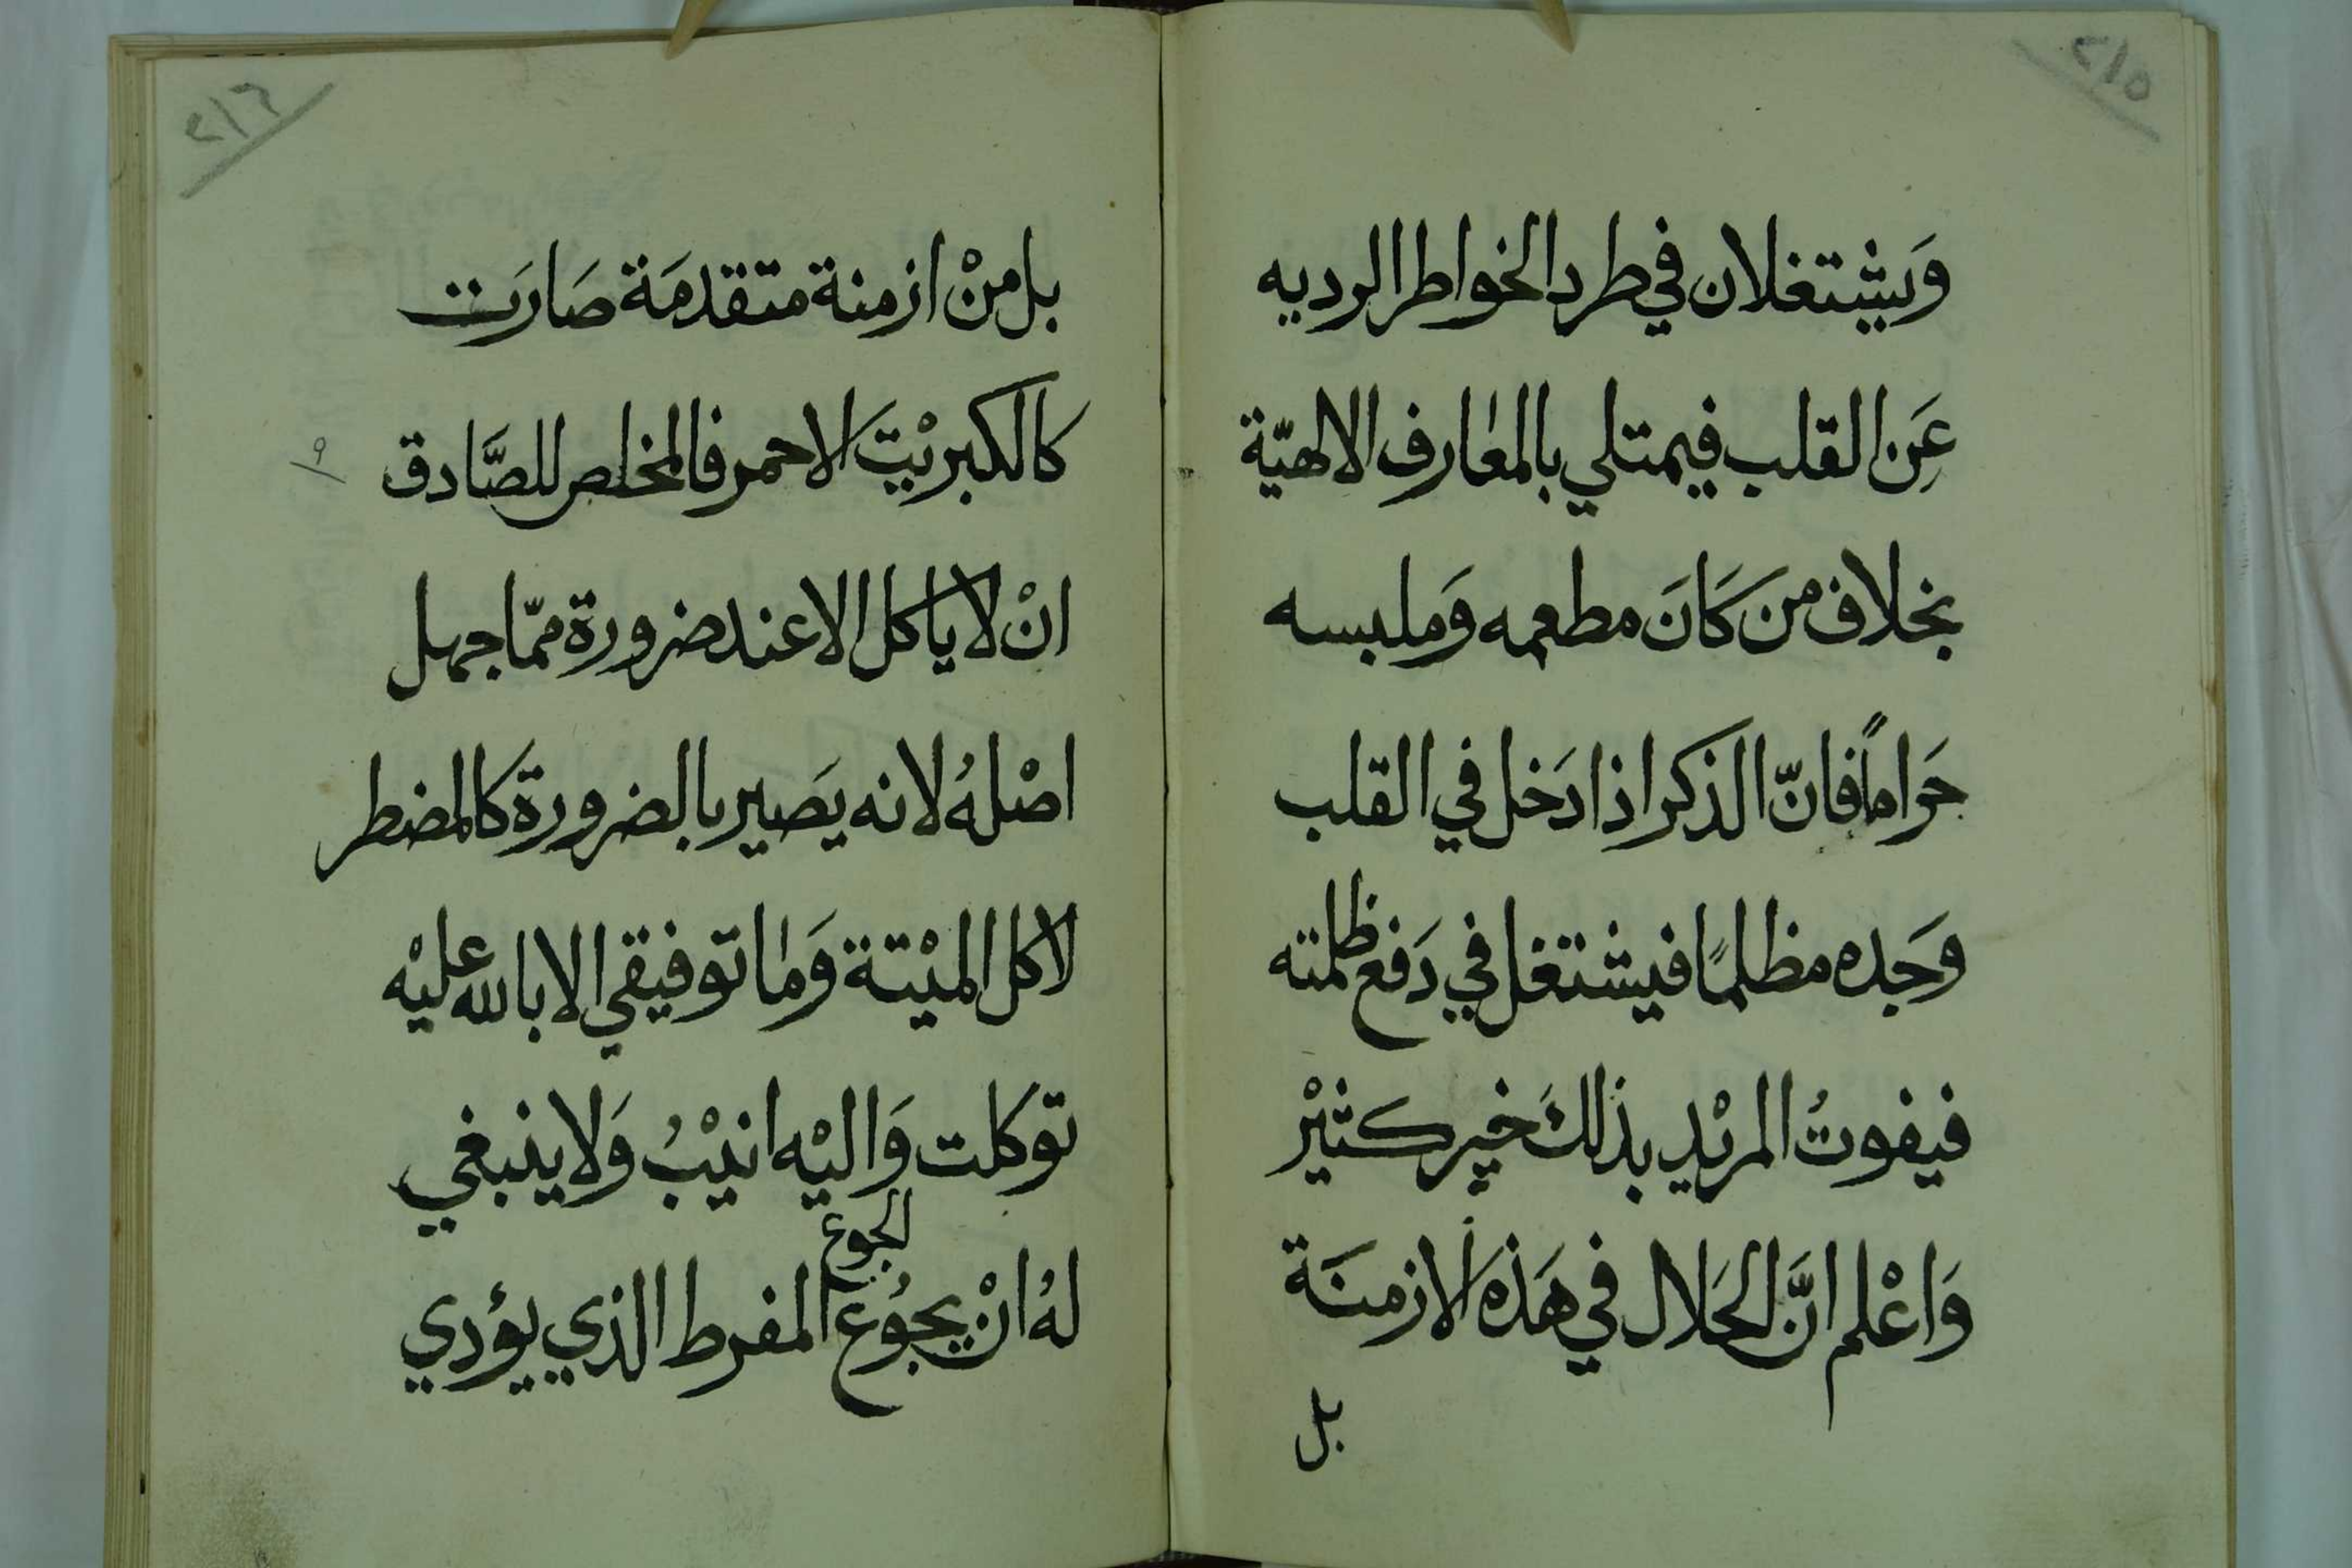 ٢١٥
وَيشتغلان في طرد الخواطر الرديه
عَنِ القلب فيمتلي بالمعارف الالهيّة
بخلاف من كَانَ مطعمه وَملبسه
حَراماً فانّ الذكر اذا دَخل في القلب
وَجده مظلمًا فيشتغل في دَفع ظلمته
فيفوتُ المريْد بذلكَ خير كثيْر
وَاعْلم انَّ الحَلال في هَذه الازمنَة
بل
٢١٦
بل منْ ازمنة متقدمَة صَارَت
كالكبريْتَ الاحمر فالمخلص للصَّادق
انْ لا ياكل الا عند ضرورة ممّا جهل
اصْلهُ لانه يصَير بالضرورة كالمضطر
لاكل الميْتة وَما توفيقي الا بالله عليْه
توكلت وَاليْه انيْبُ وَلا ينبغي
لهُ انْ يجوُع الجوع المفرط الذي يؤدي